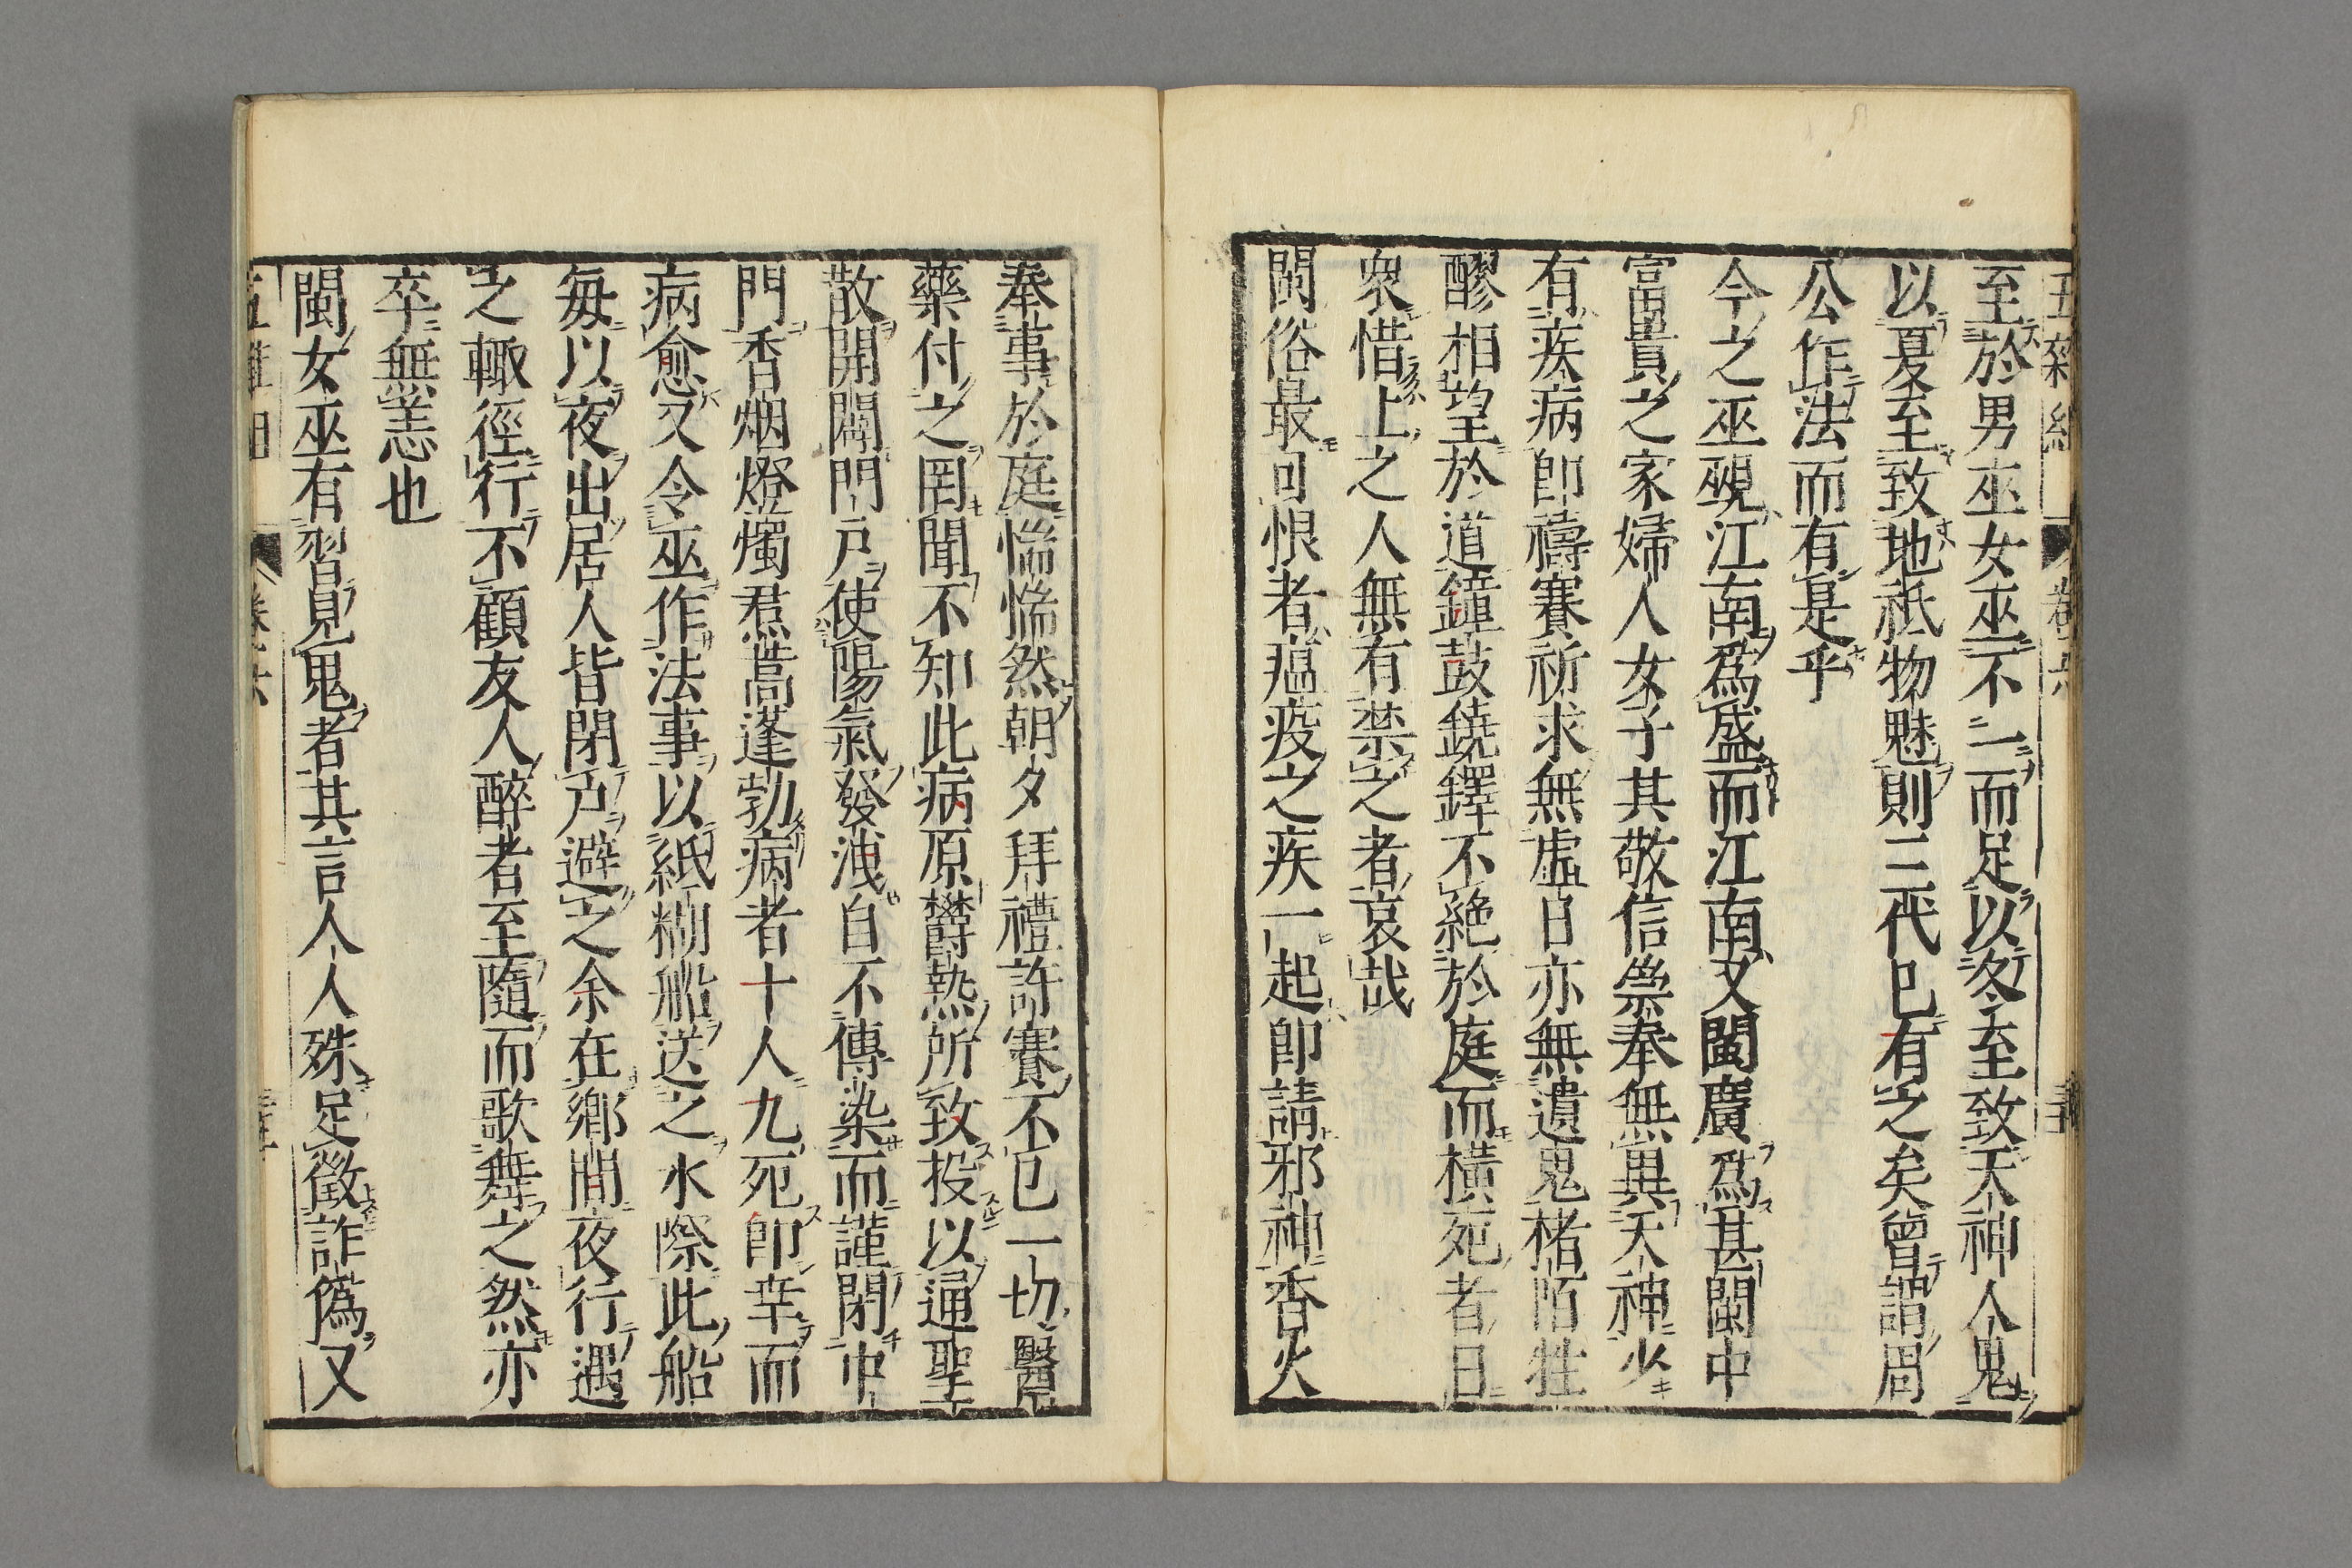 至於男巫女巫不一而足以冬至致天神人鬼
以夏至致地祇物魅則三代已有之矣曾謂周
公作法而有是乎
今之巫覡江南爲盛而江南又閩廣爲甚閩中
富貴之家婦人女子其敬信崇奉無異天神少
有疾病卽禱賽祈求無虛日亦無遺鬼楮陌牲
醪相望於道鐘鼓鐃鐸不絶於庭而橫死者日
衆惜上之人無有禁之者哀哉
閩俗最可恨者瘟疫之疾一起卽請邪神香火
奉事於庭惴惴然朝夕拜禮許賽不已一切醫
藥付之罔聞不知此病原欝熱所致投以通聖
散開闢門戶使陽氣發洩自不傳染而謹閉中
門香烟燈燭焄蒿蓬勃病者十人九死卽幸而
病愈又令巫作法事以紙糊船送之水際此船
每以夜出居人皆閉戶避之余在鄉間夜行遇
之輙徑行不顧友人醉者至隨而歌舞之然亦
卒無恙也
閩女巫有習見鬼者其言人人殊足徵詐僞又